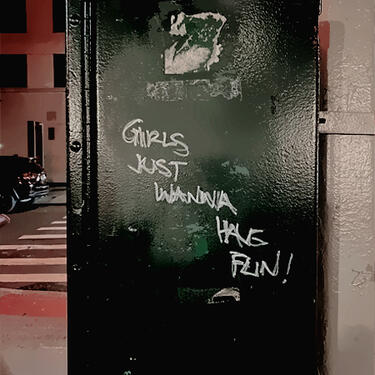 GIRLS
JUST
WANNA
HAVE
FUN!